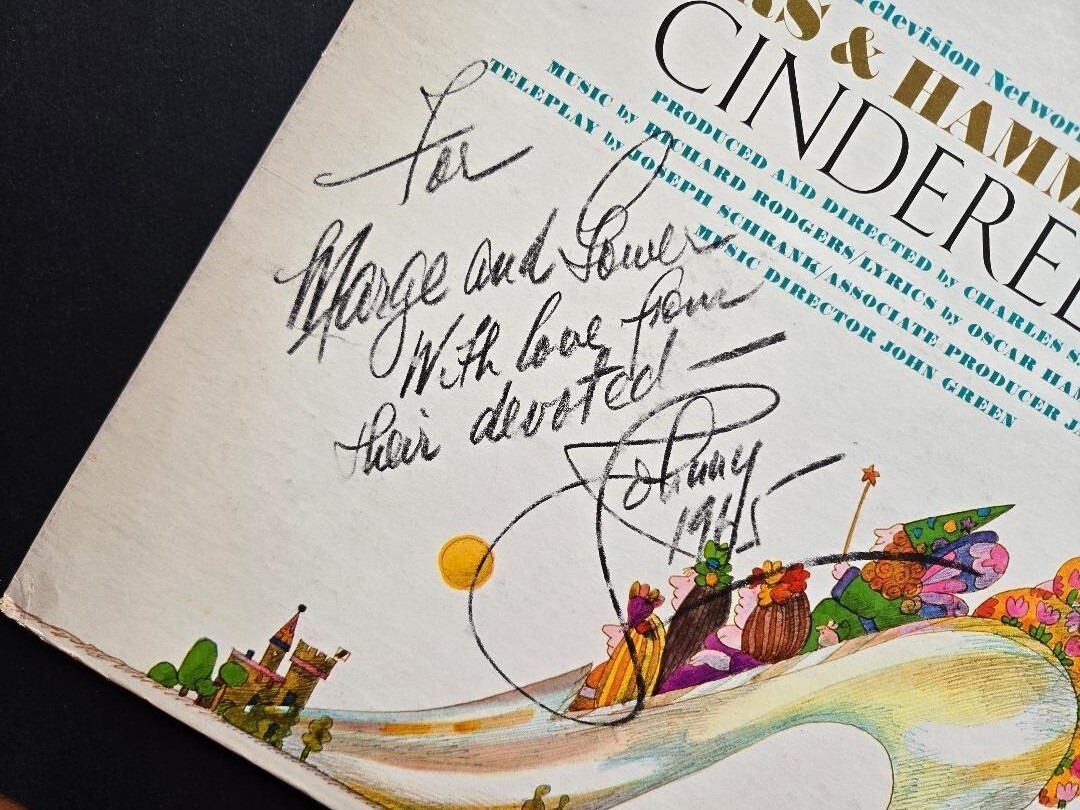 Television Network
RS & HAMM
CINDEREL
PRODUCED AND DIRECTED by CHARLES S
MUSIC by RICHARD RODGERS/LYRICS by OSCAR HAM
TELEPLAY by JOSEPH SCHRANK/ASSOCIATE PRODUCER J
MUSIC DIRECTOR JOHN GREEN
For
Marge and Lower
With love from
their devoted —
Johnny
1965